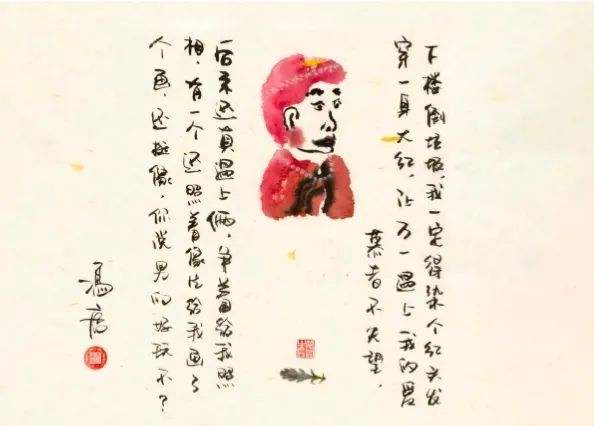 下楼倒垃圾，我一定得染个红头发
穿一身大红，让万一遇上我的爱
慕者不失望。
后来还真遇上俩，争着给我照
相，有一个还照着像片给我画了
个画，还挺像，你说男的好玩不？
冯唐